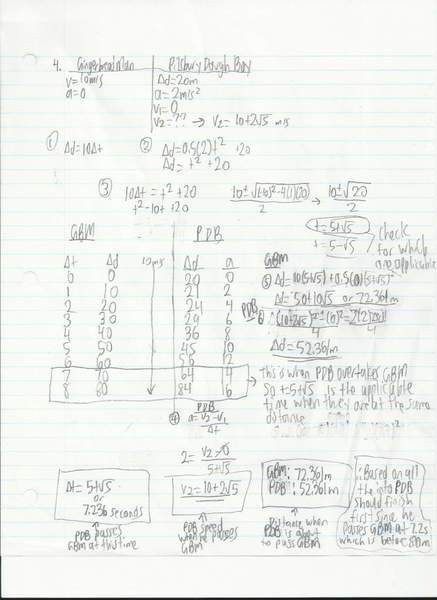 4. Gingerbread Man
Pillsbury Dough Boy
v=10m/s
a=0
Δd=20m
a=2m/s²
v1=0
v2=?? → v2= 10+2√5 m/s
① Δd=10Δt
② Δd=0.5(2)t² +20
Δd= t² +20
③ 10Δt = t² +20
t²-10t +20
10±√(-10)²-4(1)(20)
2
10±√20
2
t=5+√5
t=5-√5
check for which are applicable
GBM
Δt Δd 10m/s
0 0
1 10
2 20
3 30
4 40
5 50
6 60
7 70
8 80
PDB
Δd a
20 0
21 2
24 4
29 6
36 8
45 10
56 12
64 4
84 6
GBM
⑤ Δd=10(5+√5)+0.5(0)(5+√5)²
Δd=50+10√5 or 72.361m
PDB
Δd=52.361m
→ this is when PDB overtakes GBM
so t=5+√5 is the applicable
time when they are at the same
distance
④ PDB
a=v2-v1
Δt
2= v2-0
5+√5
Δt=5+√5
or
7.236 seconds
PDB passes
GBM at this time
v2=10+2√5
PDB speed
when he passes
GBM
GBM: 72.361m
PDB: 52.361m
Distance when
PDB is about
to pass GBM
∴Based on all
the info PDB
should finish
first since he
passes GBM at 7.2s
which is before 80m